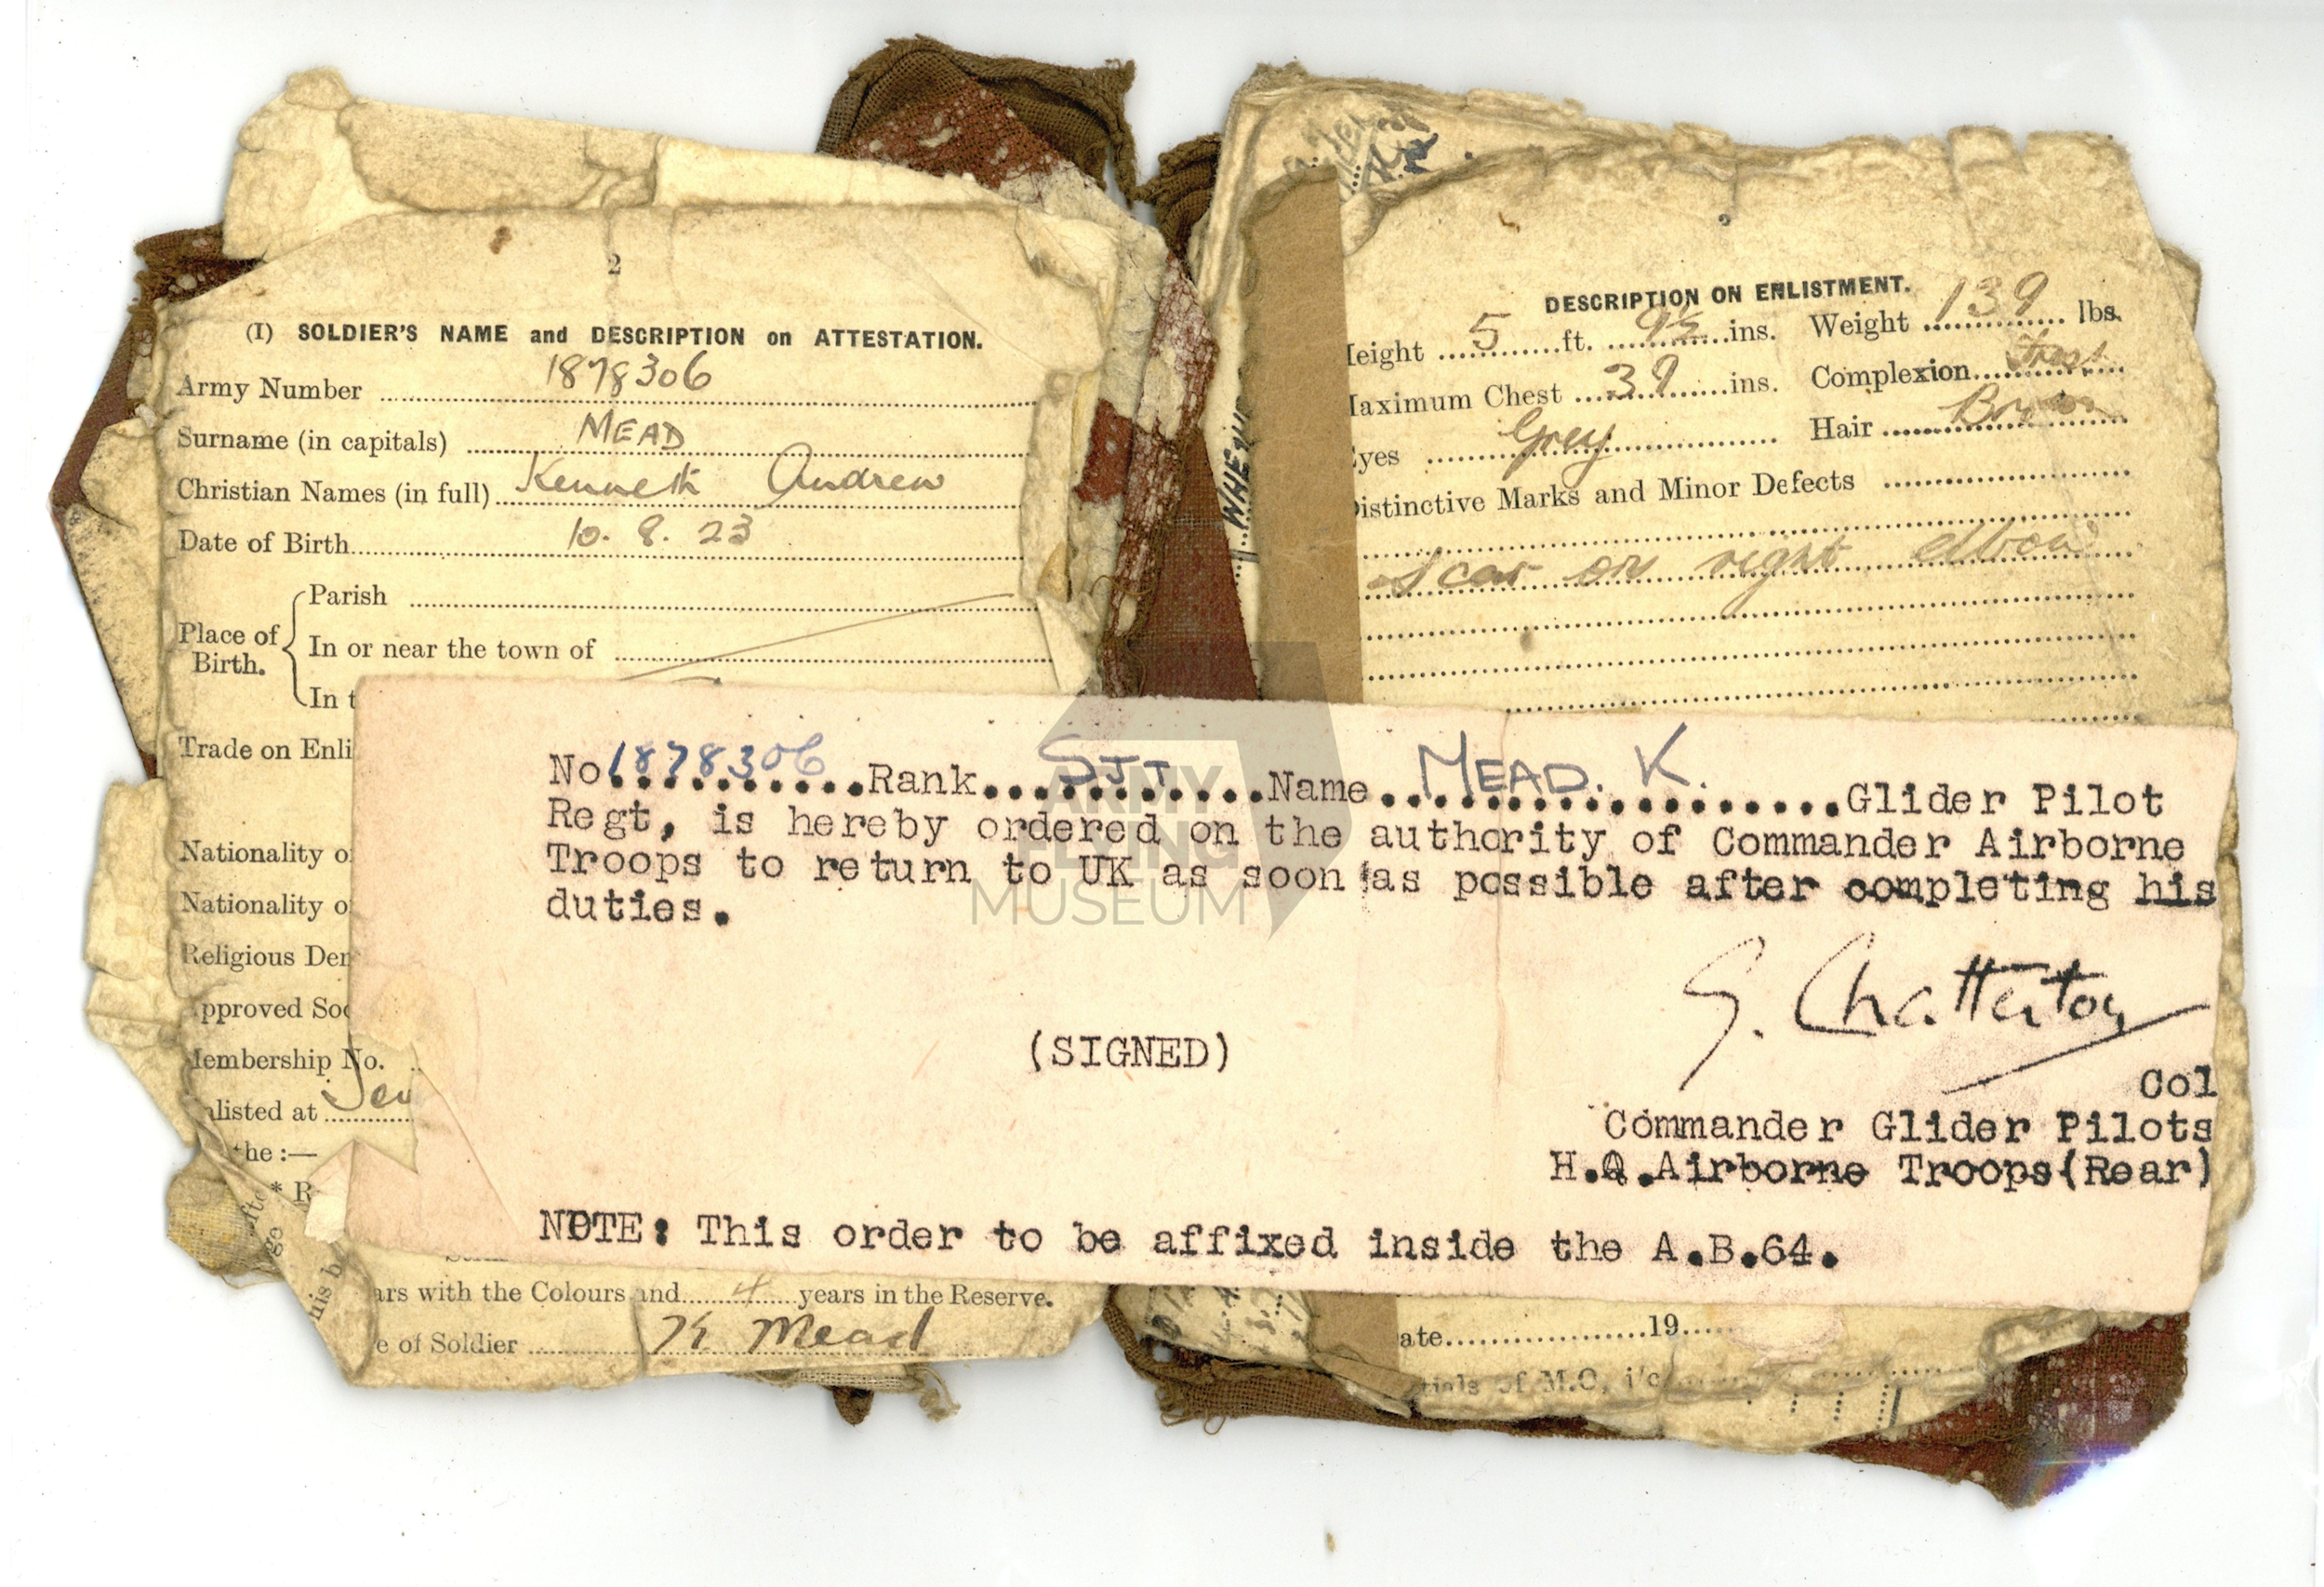 2
(I) SOLDIER'S NAME and DESCRIPTION on ATTESTATION.
Army Number 1878306
Surname (in capitals) MEAD
Christian Names (in full) Kenneth Andrew
Date of Birth 10. 8. 23
Place of Birth.
Parish
In or near the town of
In t
Trade on Enli
Nationality o
Nationality o
Religious Den
pproved Soc
Membership No.
nlisted at
the :—
* R
ars with the Colours and 4 years in the Reserve.
e of Soldier K Mead
DESCRIPTION ON ENLISTMENT.
Height 5 ft. 9½ ins. Weight 139 lbs.
Maximum Chest 39 ins. Complexion Fresh
Eyes Grey Hair Brown
Distinctive Marks and Minor Defects
Scar on right elbow
ate 19
tials of M.O, i/c
No 1878306 Rank SJT Name MEAD. K. Glider Pilot
Regt, is hereby ordered on the authority of Commander Airborne
Troops to return to UK as soon as possible after completing his
duties.
G. Chatterton
(SIGNED)
Col
Commander Glider Pilots
H.Q.Airborne Troops(Rear)
NOTE: This order to be affixed inside the A.B.64.
ARMY
FLYING
MUSEUM